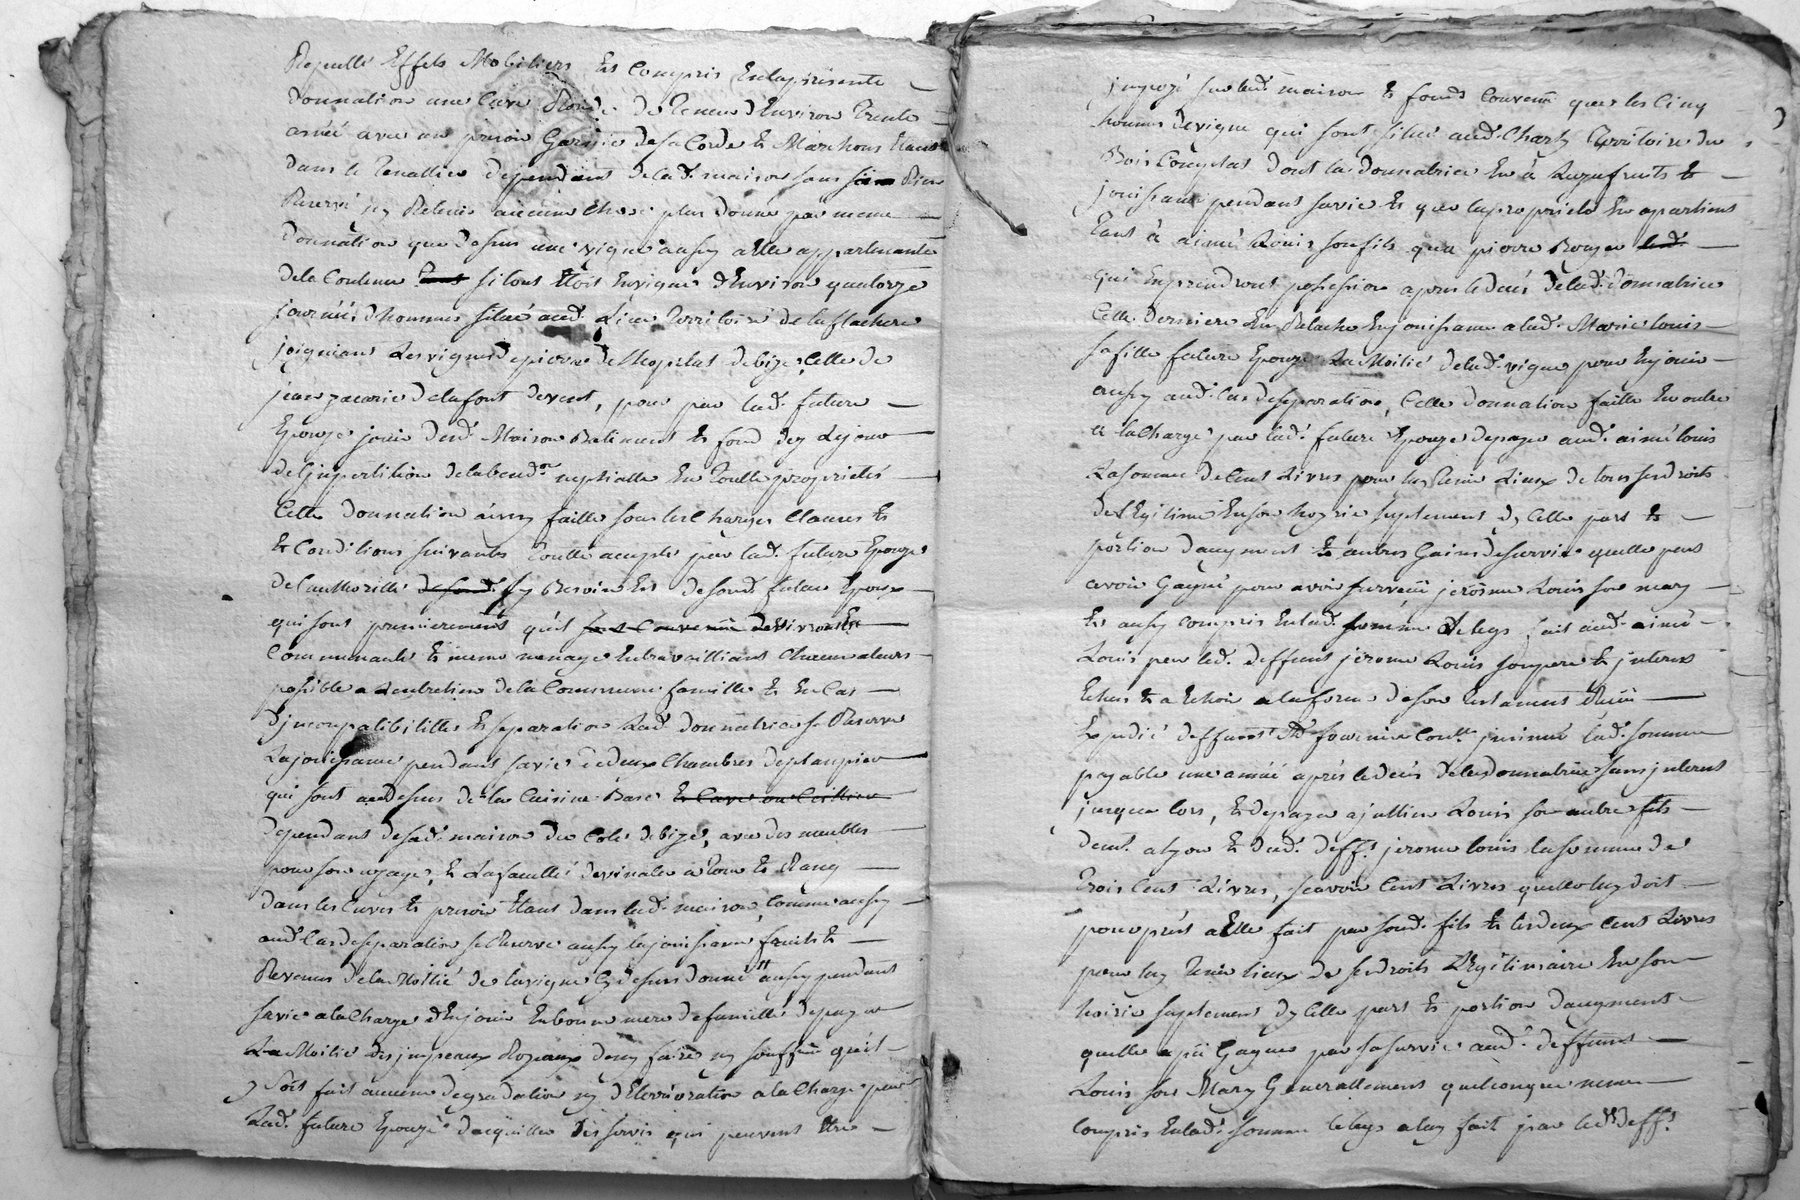 Effets Mobiliers Et Compris En la presente
donnation une Cuve Ronde de Teneu d'Environ Trente
asnée avec un presoir Garnie de sa Corde Et Manchons Etant
dans le Tenallier dependant de lad. maison sans Rien
Reservé ny Retenir aucune Chose plus donne par meme
donnation que dessus une vigne ausy a Elle appartenante
de la Contenue si tout Etoit En vigne d'Environ quatorze
journées d'hommes située aud. Lieu Territoire de la flachere
joignant Les vignes de pierre de de bize, Celle de
jean zacarie delafont de vent, pour par lad. future
Epouze jouir dud. Maison Batiment Et fond dez Le jour
de nuptialle En Toutte proprietés
Cette donnation ainsy faitte sous les Charges Clauses Et
Et Conditions suivantes Toutte accepté par lad. future Epouze
de l'authorité de sond. futur Epoux
qui sont premierement qu'il
Communauté Et meme menage En travailliant Chacun a leurs
possible a L'entretien de la Commune famille Et En Cas
d'jncompatibilitté Et separation Lad. donnatrice se Reserve
La jouissance pendant sa vie de deux Chambres de planpied
qui sont au dessus de la Cuisine Basse Et Cave ou Cellier
dependant de sad. maison du Coté de bize, avec des meubles
pour son uzage, Et La faculté de vinaler a tour Et Rang
dans les Cuves Et presoir Etant dans lad. maison, Comme ausy
aud. Cas de separation se Reserve ausy la jouissance fruits Et
Revenus de la Moitié de la vigne Cy dessus donné ausy pendant
sa vie a la Charge d'En jouir En bonne mere de famille de payer
La Moitié des jmpeaux Royaux d'en faire ny souffrir qu'il
y soit fait aucune degradation ny detterioration a la Charge par
Lad. future Epouze d'acquitter Les servis qui peuvent Etre
jmpozé sur lad. maison Et fonds Convenu que les Cinq
hommes de vigne qui sont situé aud. Charly Territoire du
Bois dont la donnatrice En à L'uzufruits Et
jouissance pendant sa vie Et que la proprieté En apartient
Tant à aimé Louis son fils qu'a pierre
qui En prendront possession apres le deces de lad. donnatrice
Cette derniere En Relache En jouissance a lad. Marie louis
sa fille future Epouze La Moitié de lad. vigne pour En jouir
ausy aud. Cas de separation, Cette donnation faitte En outre
a la Charge par lad. future Epouze de payer aud. aimé louis
La somme de Cent Livres pour luy Tenir Lieux de tous ses droits
de Legitime En son hoyrie suplement d'y Celle part Et
portion d'augment Et autres Gains de survie quelle peut
avoir Gagné pour avoir survecu jerosme Louis son mary
Et ausy compris En lad. somme le legs fait aud. aimé
Louis par led. deffunt jerome Louis son pere Et jnterest
Echus Et a Echoir a la forme de son testament Reçu
Expedié deffunt Me jnsinué lad. somme
payable une année après le deces de la donnatrice sans jnterest
jusque lors, Et de payer a jullien Louis son autre fils
demt. a Lyon Et dud. defft. jerome louis la somme de
Trois Cent Livres, scavoir Cent Livres quelle luy doit
pour prét a Elle fait par sond. fils Et les deux Cent Livres
pour luy Tenir lieux de ses droits Legitimaire En son
hoirie suplement d'y Celle part Et portion d'augment
quelle a pu Gagner par sa survie aud. deffunt
Louis son Mary Generallement quelconque meme
Compris En lad. somme le legs a luy fait par led. defft.